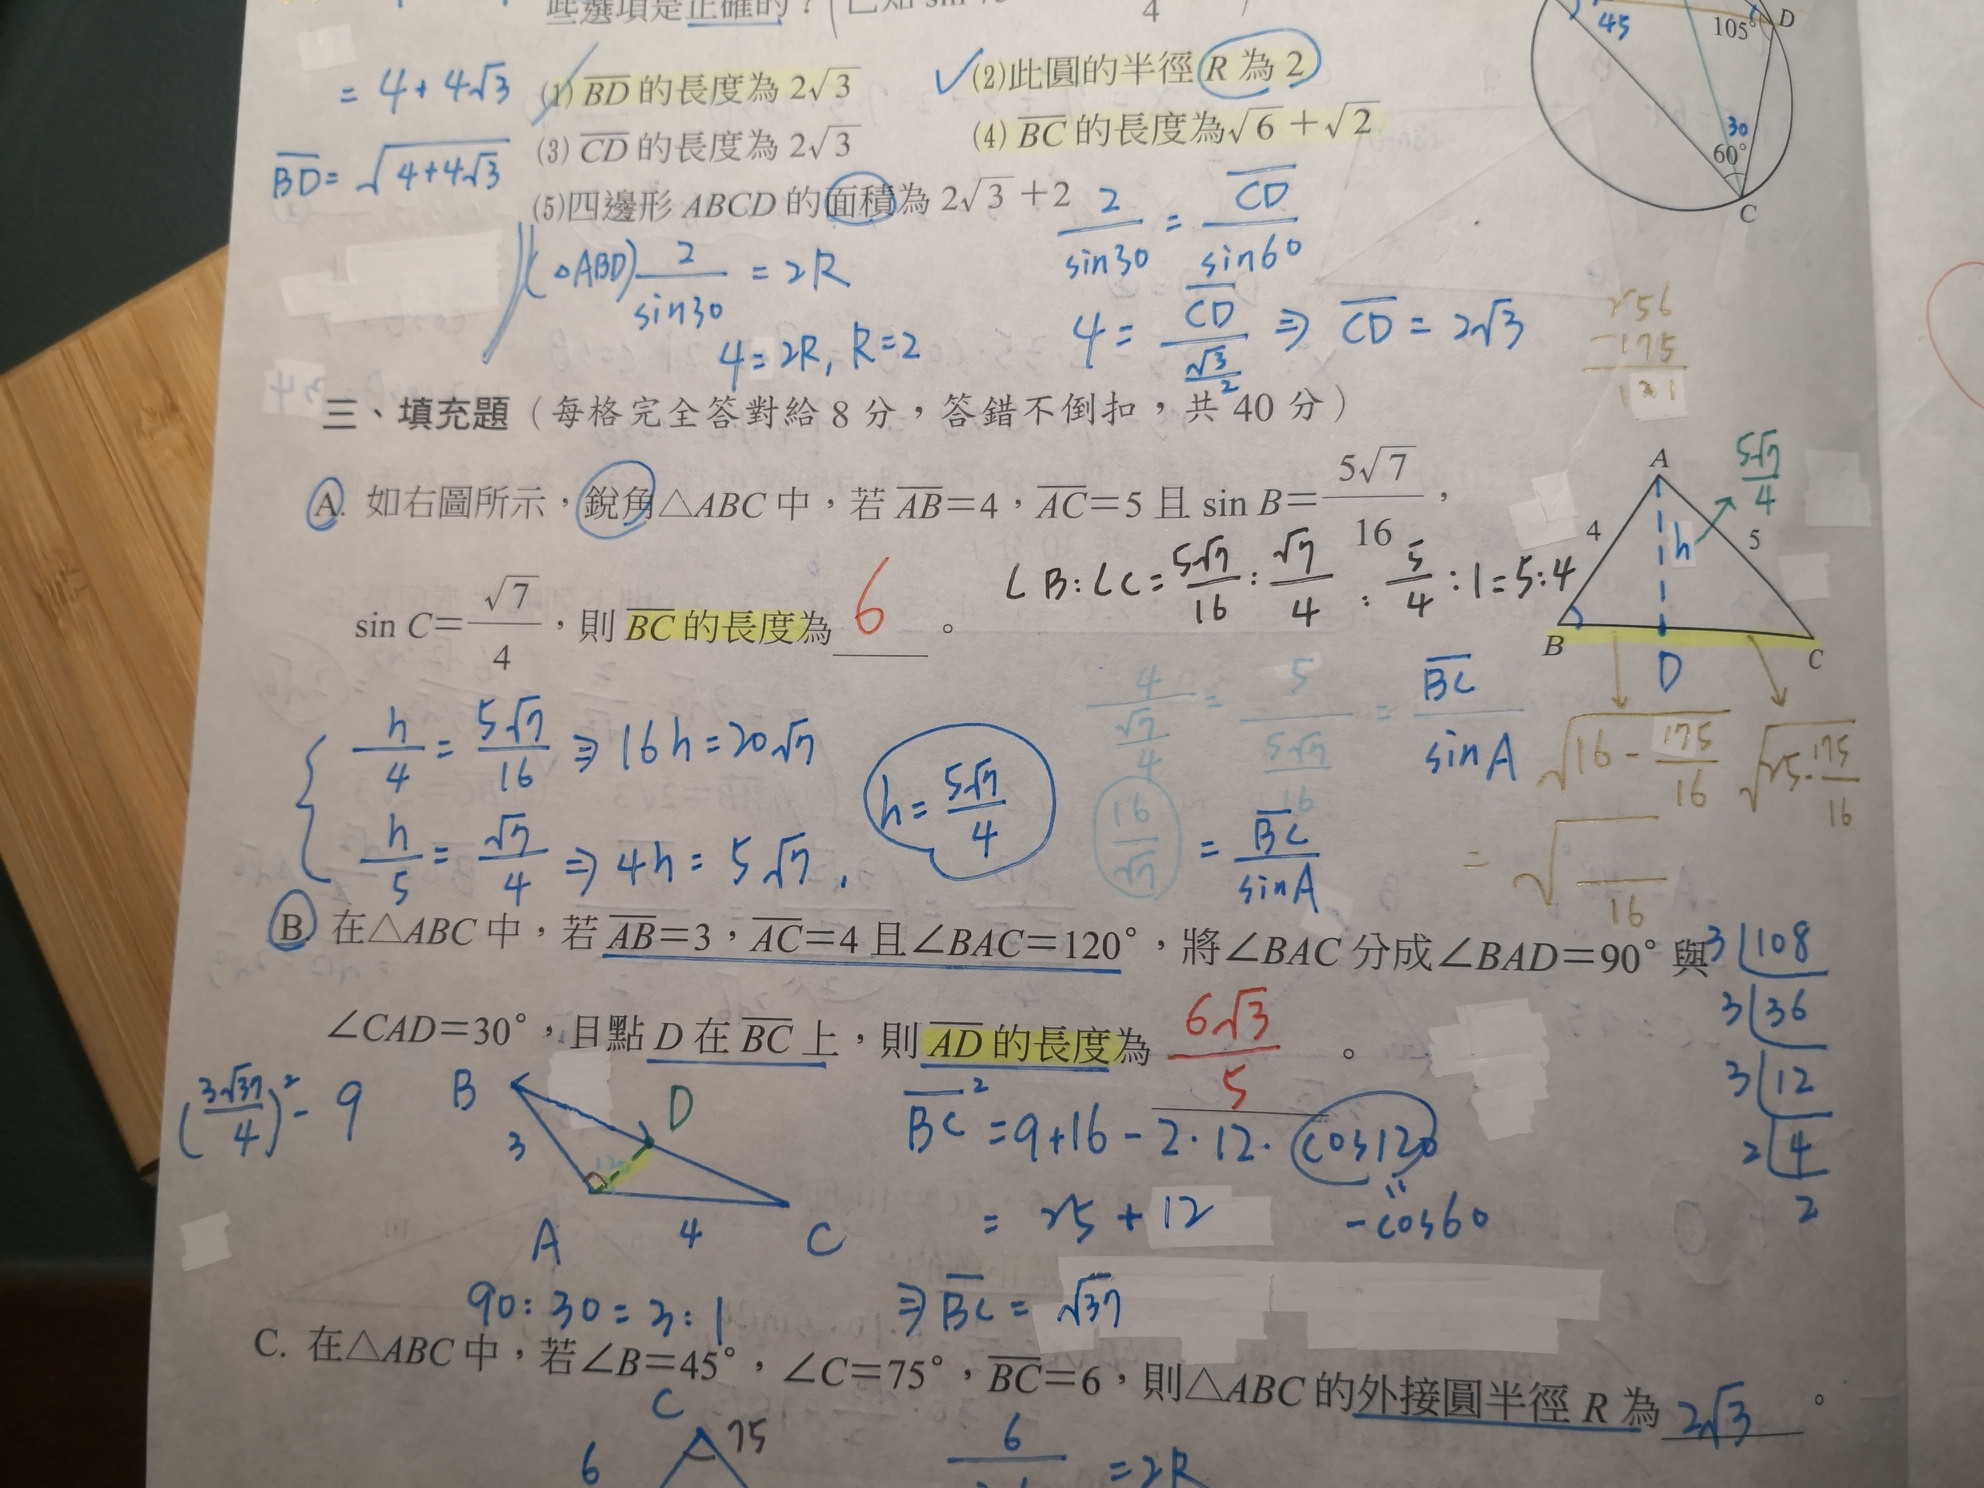 些選項是正確的？
4
= 4+4√3 (1) BD 的長度為 2√3 (2)此圓的半徑 R 為 2
BD = √(4+4√3) (3) CD 的長度為 2√3 (4) BC 的長度為 √6+√2
(5)四邊形 ABCD 的面積為 2√3+2
45 105° D
30
60°
C
(△ABD) 2/sin30 = 2R
4=2R, R=2
2/sin30 = CD/sin60
4 = CD/(√3/2) ⇒ CD = 2√3
256
-175
三、填充題（每格完全答對給 8 分，答錯不倒扣，共 40 分）
A. 如右圖所示，銳角△ABC 中，若 AB=4，AC=5 且 sin B=5√7/16，
sin C=√7/4，則 BC 的長度為 6 。
∠B:∠C = 5√7/16 : √7/4 : 5/4 : 1 = 5:4
A 5√7/4
4 h 5
B D C
h/4 = 5√7/16 ⇒ 16h = 20√7
h/5 = √7/4 ⇒ 4h = 5√7
h = 5√7/4
4/(√7/4) = 5/(5√7/16) = BC/sinA
16/√7 = BC/sinA
√(16-175/16) √(25-175/16)
= √ 16
B. 在△ABC 中，若 AB=3，AC=4 且∠BAC=120°，將∠BAC 分成∠BAD=90° 與
∠CAD=30°，且點 D 在 BC 上，則 AD 的長度為 6√3/5 。
3 108
3 36
3 12
2 4
2
(3√37/4)² - 9
B D
3
A 4 C
90:30=3:1
BC² = 9+16-2·12·cos120
-cos60
= 25+12
⇒ BC = √37
C. 在△ABC 中，若∠B=45°，∠C=75°，BC=6，則△ABC 的外接圓半徑 R 為 2√3 。
C
75
6
6
=2R